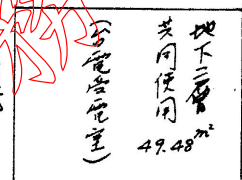 地下三層
共同使用
49.48m²
(台電受電室)